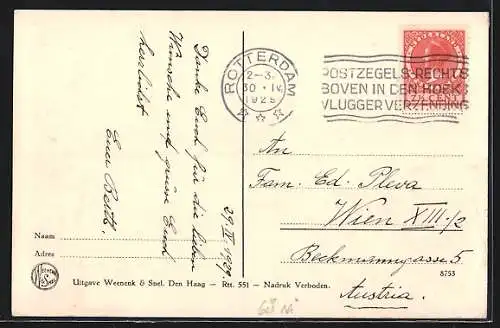 29. IV. 1928
Danke Euch für die lieben
Wünsche und grüsse Euch
herzlichst
Euer Berth.
ROTTERDAM
2-3.
30 · IV
1928
POSTZEGELS RECHTS
BOVEN IN DEN HOEK
VLUGGER VERZENDING
NEDERLAND
7½ CENT
An
Fam. Ed. Pleva
Wien XIII/2
Beckmanngasse 5
Austria.
Naam
Adres
Uitgave Weenenk & Snel, Den Haag — Rtt. 551 — Nadruk Verboden.
8753